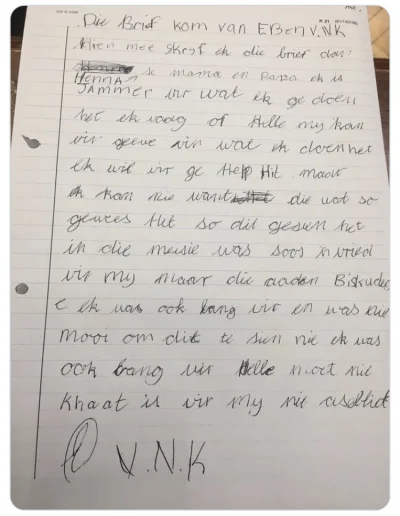 Die Brief kom van EBen V.NK
Hier mee skryf ek die brief dat
HENNA se mama en Papa ek is
JAMMER vir wat ek ge doen
het ek vraag of Hille my kan
vir geewe vir wat ek doen het
ek wil vir ge Help Hit maar
ek kan nie want die wat so
gewees Hit so dit gesien het
in die meisie was soos in vriend
vir my maar die aaden
e ek was ook bang vir en was nie
mooi om dit te sien nie ek was
ook bang vir Hille moet nie
khaat is vir my nie asebliet
V.N.K